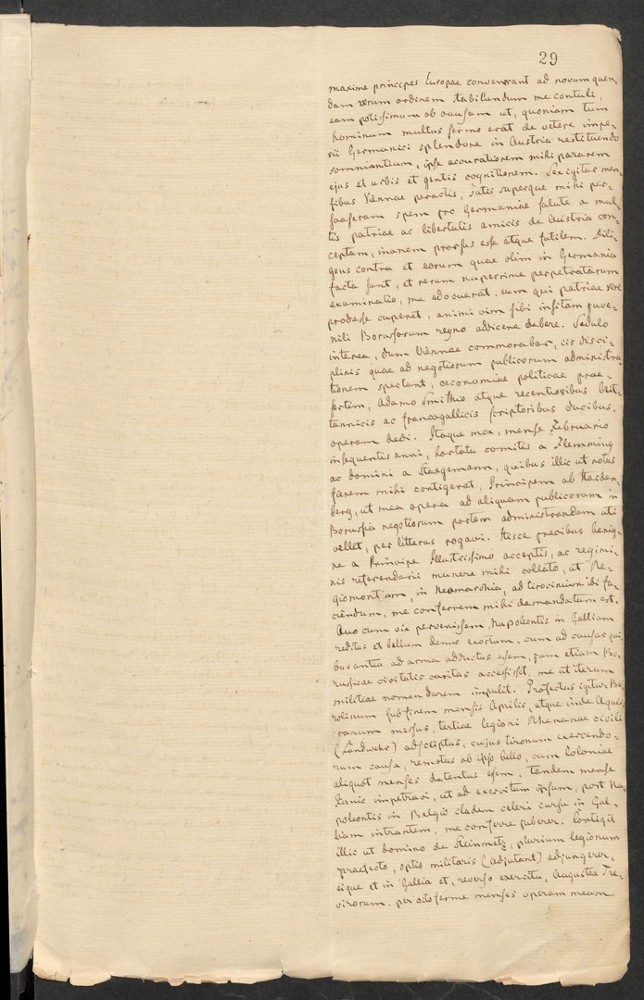 29
maxime principes Europae convenerant ad novum quen¬
dam rerum ordinem stabiliendum me contuli,
eam potissimum ob causam ut, quoniam tum
hominum multus sermo erat de vetere impe¬
rii Germanici splendore in Austria restituendo
somniantium, ipse accuratiorem mihi pararem
ejus et urbis et gentis cognitionem. Sex igitur men¬
sibus Viennae peractis, satis superque mihi per¬
suaseram spem pro Germaniae salute a mul¬
tis patriae ac libertatis amicis de Austria con¬
ceptam, inanem prorsus esse atque futilem. Dili¬
gens contra et eorum quae olim in Germania
facta sunt, et rerum nuperrime perpetratarum
examinatio, me edocuerat, eum qui patriae vere
prodesse cuperet, animi vim sibi insitam juve¬
nili Borussorum regno addicere debere. Sedulo
interea, dum Viennae commorabar, iis disci¬
plinis quae ad negotiorum publicorum administra
tionem spectant, oeconomiae politicae prae¬
sertim, Adamo Smithio atque recentioribus brit¬
tannicis ac francogallicis scriptoribus ducibus,
operam dedi. Itaque mox, mense Februario
insequentis anni, hortatu comitis a Flemming
ac domini a Staegemann, quibus illic ut notus
fierem mihi contigerat, Principem ab Harden¬
berg, ut mea opera ad aliquam publicorum in
Borussia negotiorum partem administrandam uti
vellet, per litteras rogavi. Hisce precibus benig¬
ne a Principe Illustrissimo acceptis, ac regimi¬
nis referendarii munere mihi collato, ut Re¬
giomontum, in Neomarchia, ad tirocinium ibi fa¬
ciendum, me conferrem mihi demandatum est.
Quo cum vix pervenissem, Napoleontis in Galliam
reditus et bellum denuo exortum, cum ad causas qui
bus antea ad arma adductus essem, jam etiam Bo¬
russicae civitatis caritas accessisset, me ut iterum
militiae nomen darem impulit. Profectus igitur Be¬
rolinum sub finem mensis Aprilis, atque inde Aquis
granum missus, tertiae legioni Rhenanae civili
(Landwehr) adscriptus, cujus tironum exercendo¬
rum causa, remotus ab ipso bello, cum Coloniae
aliquot menses detentus essem, tandem mense
Junio impetravi, ut ad exercitum ipsum, post Na¬
poleontis in Belgio cladem celeri cursu in Gal¬
liam intrantem, me conferre juberer. Contigit
illic ut domino de Steinmetz, plurium legionum
praefecto, optio militaris (adjutant) adjungerer,
eique et in Gallia et, reverso exercitu, Augustae Tre¬
virorum, per octo ferme menses operam meam